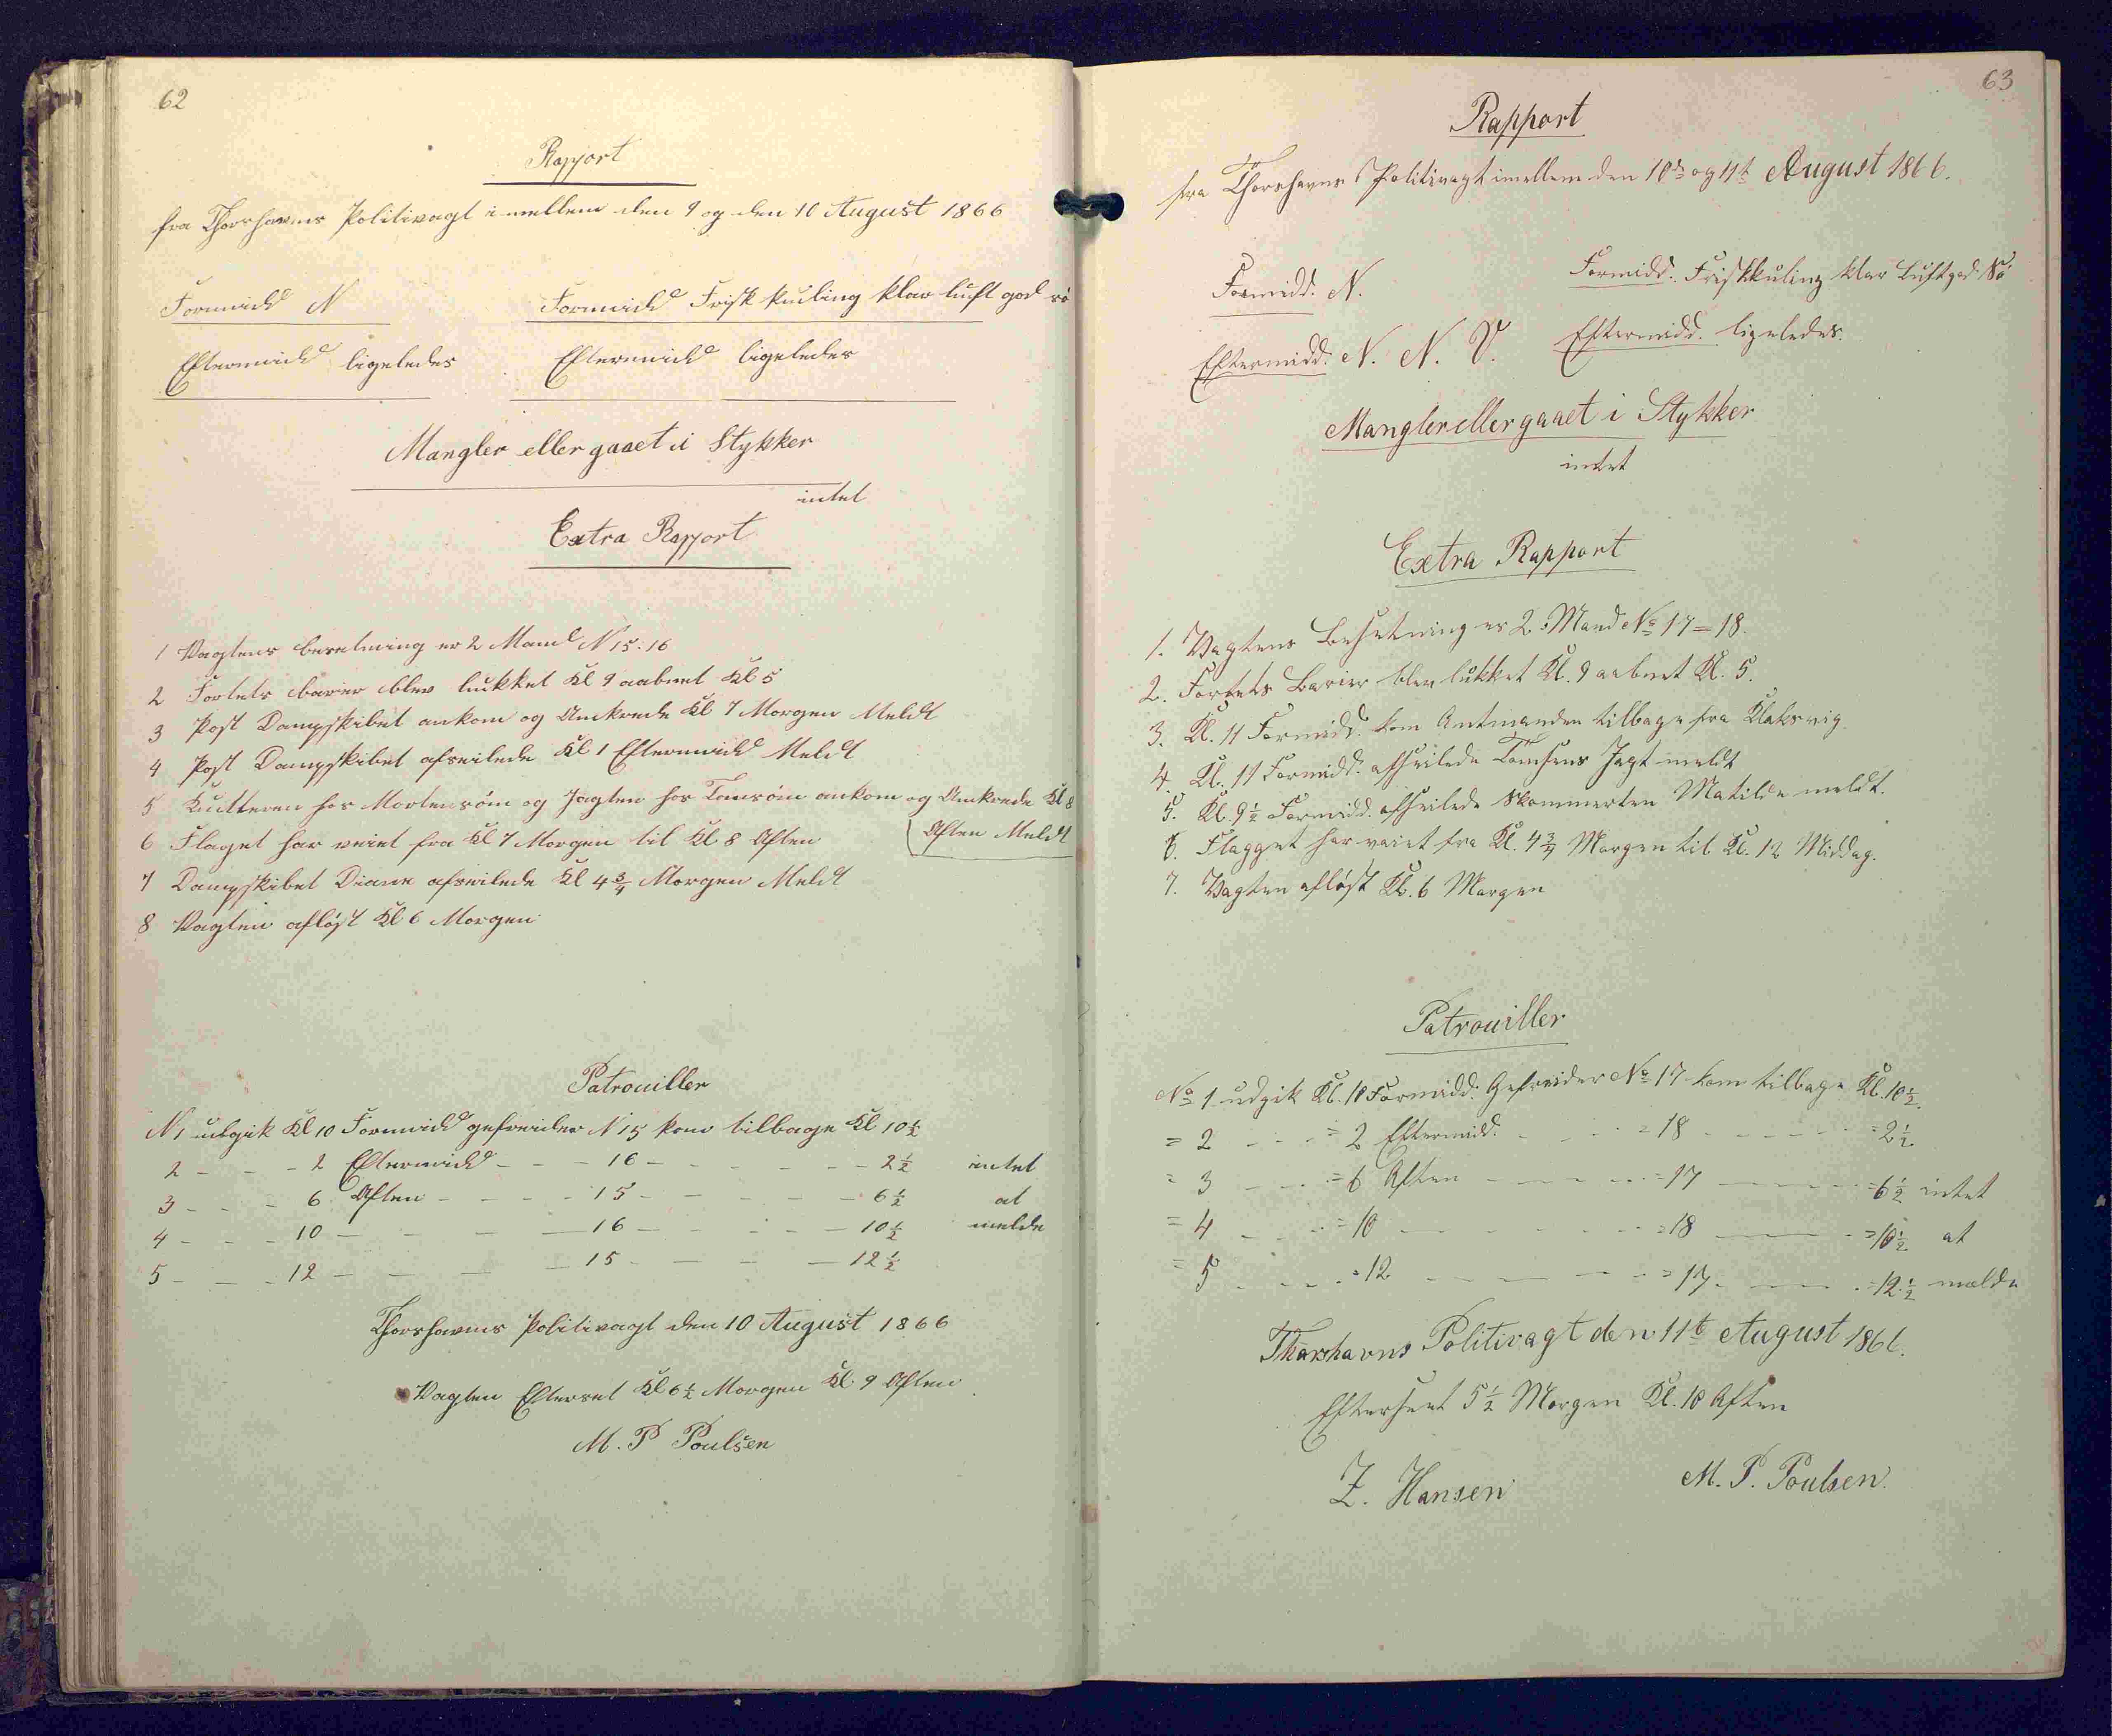 62
Rapport
fra Thorshavns Politivagt imellem den 9 og den 10 August 1866
Formidd N
Formidd Frisk kuling klar luft god sö
Eftermidd ligeledes
Eftermidd ligeledes
Mangler eller gaaet i Stykker
intet
Extra Rapport
1 Vagtens besetning er 2 Mand N 15. 16
2 Fortets barier blev lukket Kl 9 aabnet Kl 5
3 Post Dampskibet ankom og Ankrede Kl 7 Morgen Meldt
4 Post Dampskibet afseilede Kl 1 Eftermidd Meldt
5 Kutteren hos Mortensöm og Jagten hos Tomsöm ankom og Ankrede Kl 8
Aften Meldt
6 Flaget har veiet fra Kl 7 Morgen til Kl 8 Aften
7 Dampskibet Diana afseilede Kl 4 3/4 Morgen Meldt
8 Vagten aflöst Kl 6 Morgen
Patrouiller
N 1 udgik Kl 10 Formidd gefreider N 15 kom tilbage Kl 10 1/2
2 - - - 2 Eftermidd - - - 16 - - - - - 2 1/2 intet
3 - - - 6 Aften - - - - 15 - - - - - 6 1/2 at
4 - - - 10 - - - - 16 - - - - - 10 1/2 melde
5 - - - 12 - - - - 15 - - - - 12 1/2
Thorshavns Politivagt den 10 August 1866
Vagten Efterset Kl 6 1/2 Morgen Kl 9 Aften
M. P Poulsen
63
Rapport
fra Thorshavns Politivagt imellem den 10de og 11t August 1866.
Formidd. N.
Formidd. Friskkuling klar Luft god Sö
Eftermidd. N. N. V.
Eftermidd. ligeledes.
Mangler eller gaaet i Stykker
intet
Extra Rapport
1. Vagtens Besetning er 2 Mand No 17 = 18.
2. Fortets Barier blev lukket Kl. 9 aabnet Kl. 5.
3. Kl. 11 Formidd. kom Antmanden tilbage fra Klaksvig.
4. Kl. 11 Formidd. afseilede Tomsens Jagt meldt
5. Kl. 9 1/2 Formidd. afseilede Skonnerten Matilde meldt.
6. Flagget har vaiet fra Kl. 4 3/4 Morgen til Kl. 12 Middag.
7. Vagten aflöst Kl. 6 Morgen
Patrouiller
No 1 udgik Kl. 10 Formidd. Gefreider No 17 kom tilbage Kl. 10 1/2.
= 2 - - - = 2 Eftermidd. - - - = 18 - - - - = 2 1/2.
= 3 - - - = 6 Aften - - - - = 17 - - - = 6 1/2 intet
= 4 - - - = 10 - - - - - = 18 - - - = 10 1/2 at
= 5 - - - = 12 - - - - = 17 - - - = 12 1/2 melde
Thorshavns Politivagt den 11t August 1866.
Efterseet 5 1/2 Morgen Kl. 10 Aften
Z. Hansen
M. P. Poulsen.